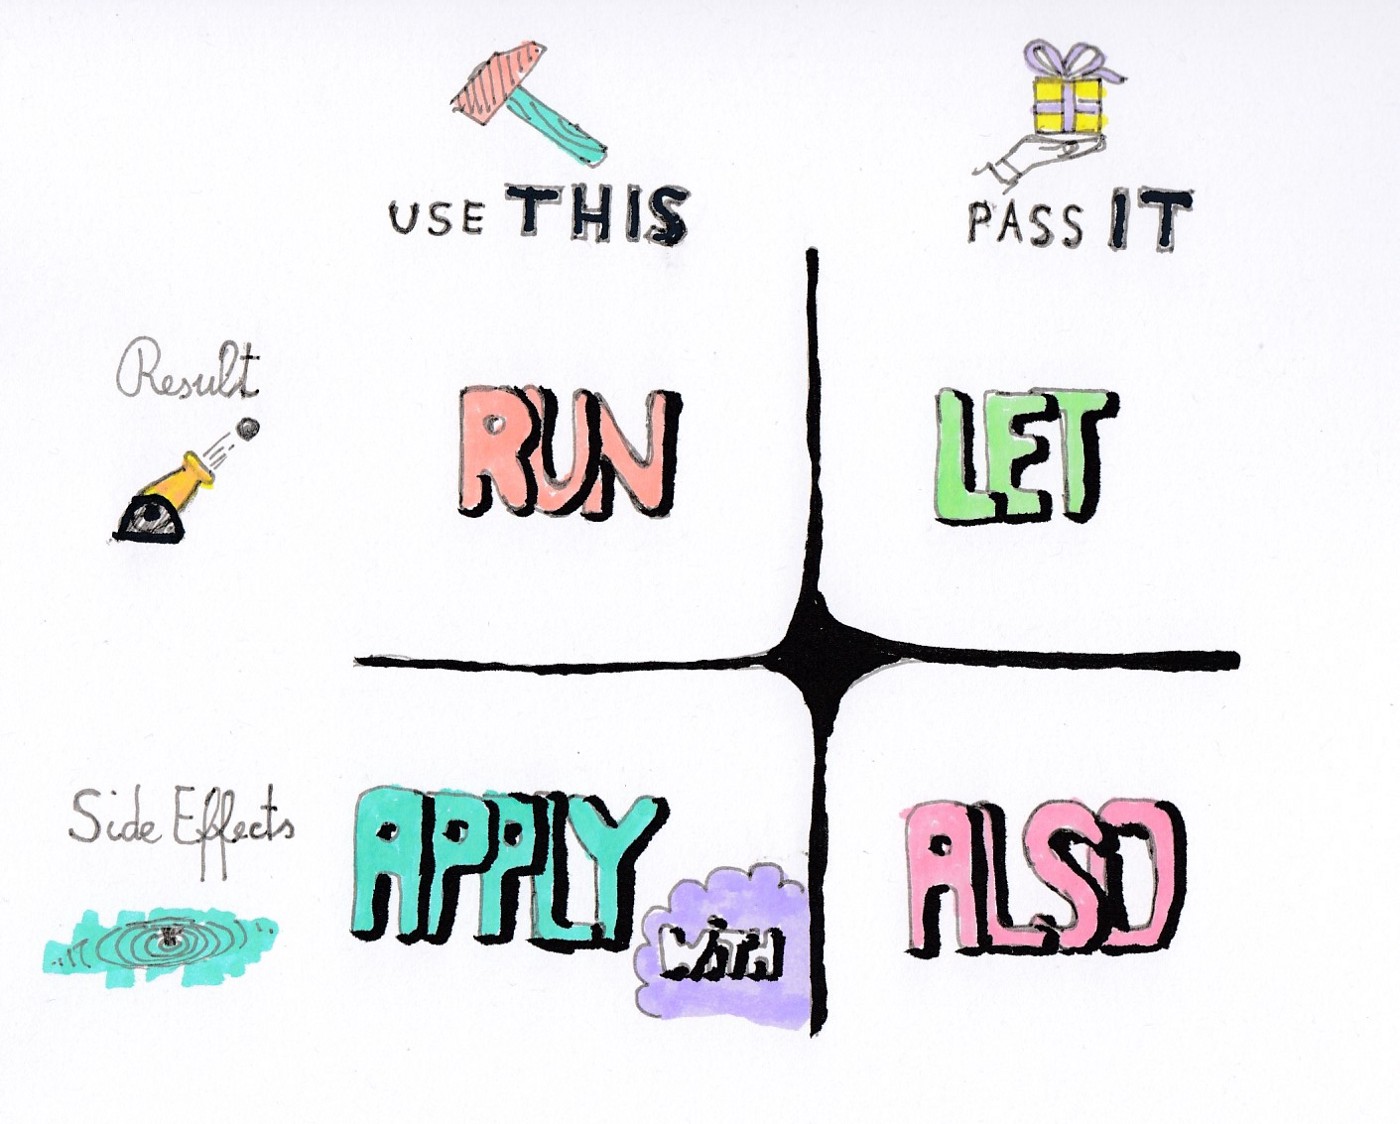 USE THIS
PASS IT
Result
RUN
LET
Side Effects
APPLY
WITH
ALSO